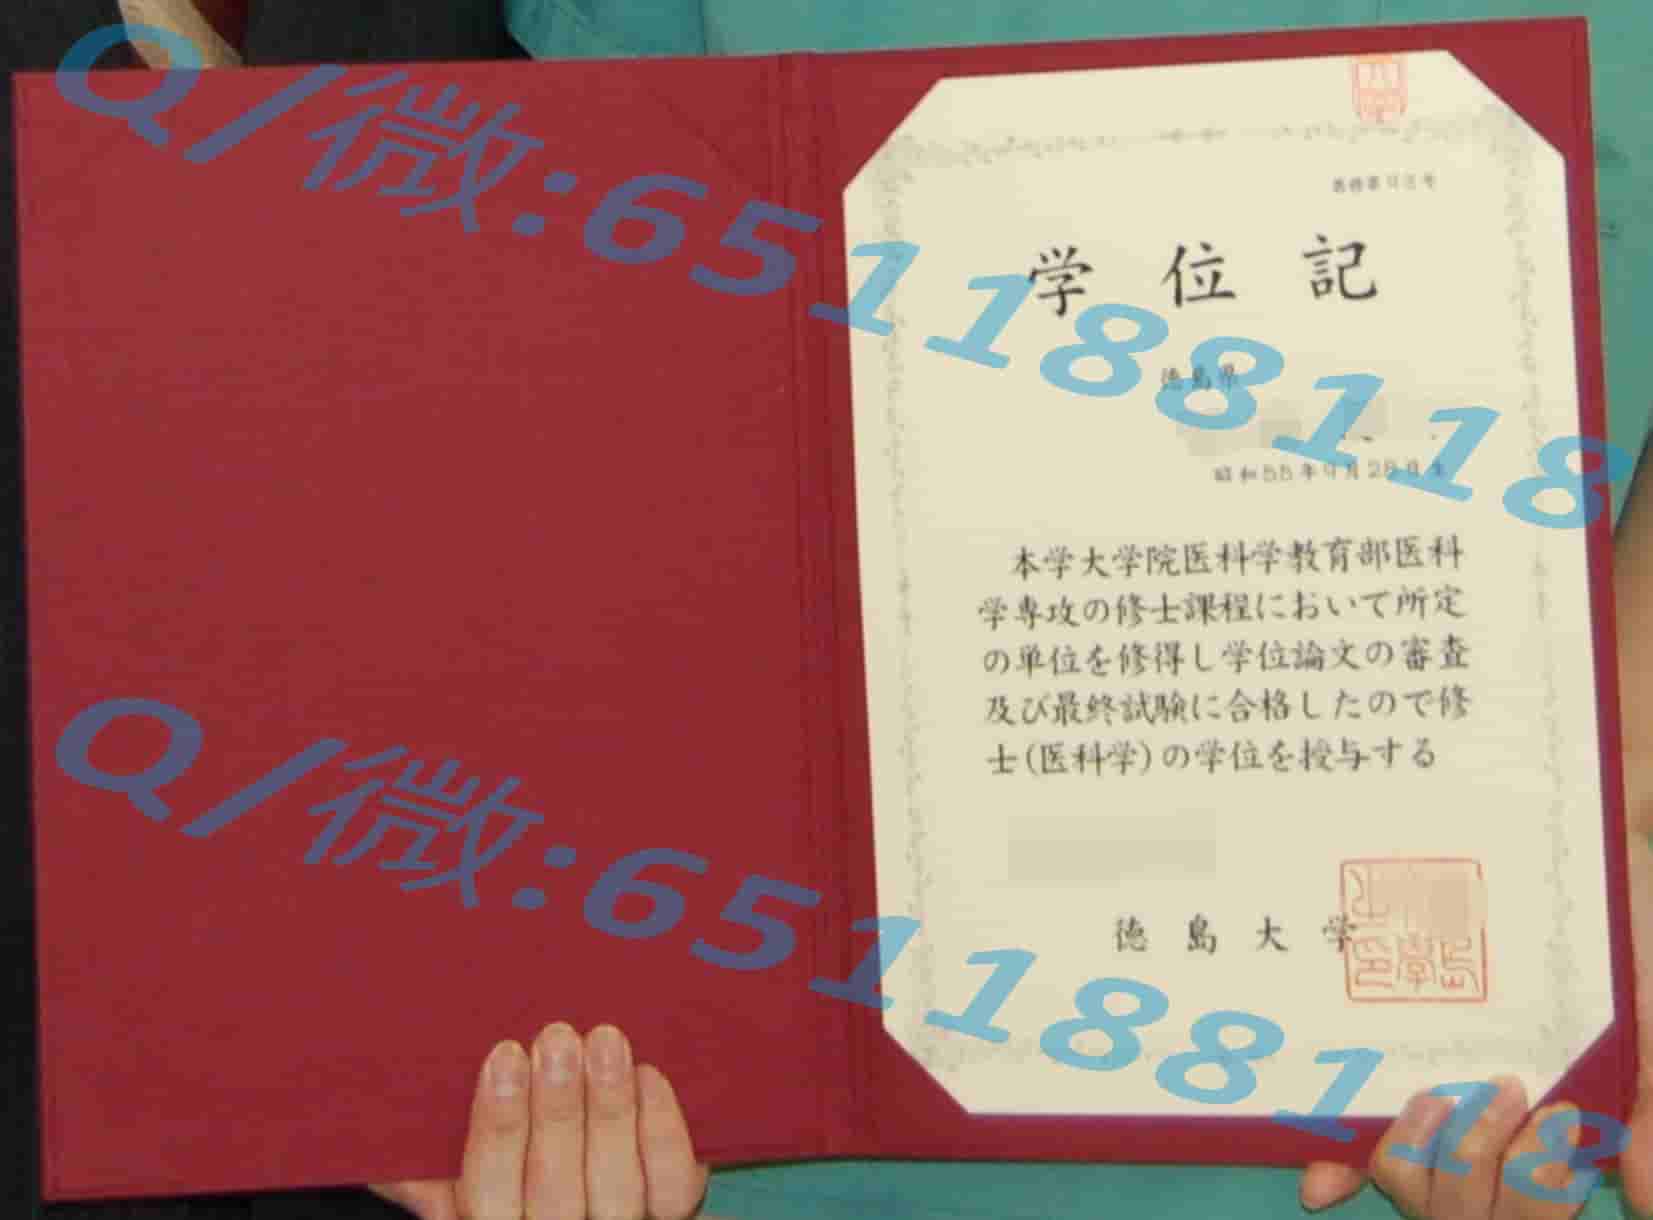 Q/微:6511881118
学位記
徳島県
昭和55年9月28日生
本学大学院医科学教育部医科
学専攻の修士課程において所定
の単位を修得し学位論文の審査
及び最終試験に合格したので修
士(医科学)の学位を授与する
徳島大学
Q/微:6511881118